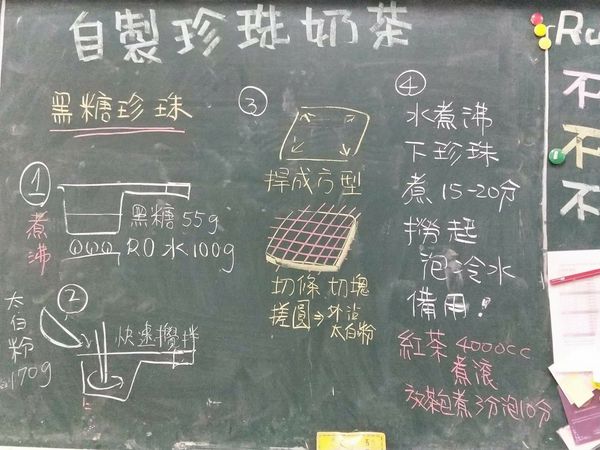 自製珍珠奶茶
黑糖珍珠
①
煮沸
黑糖 55g
RO 水 100g
②
太白粉
170g
快速攪拌
③
捍成方型
切條 切塊
搓圓⇒外沾
太白粉
④
水煮沸
下珍珠
煮 15-20分
撈起
泡冷水
備用!
紅茶 4000cc
煮滾
放茶包煮3分泡10分
Ru
不
不
不